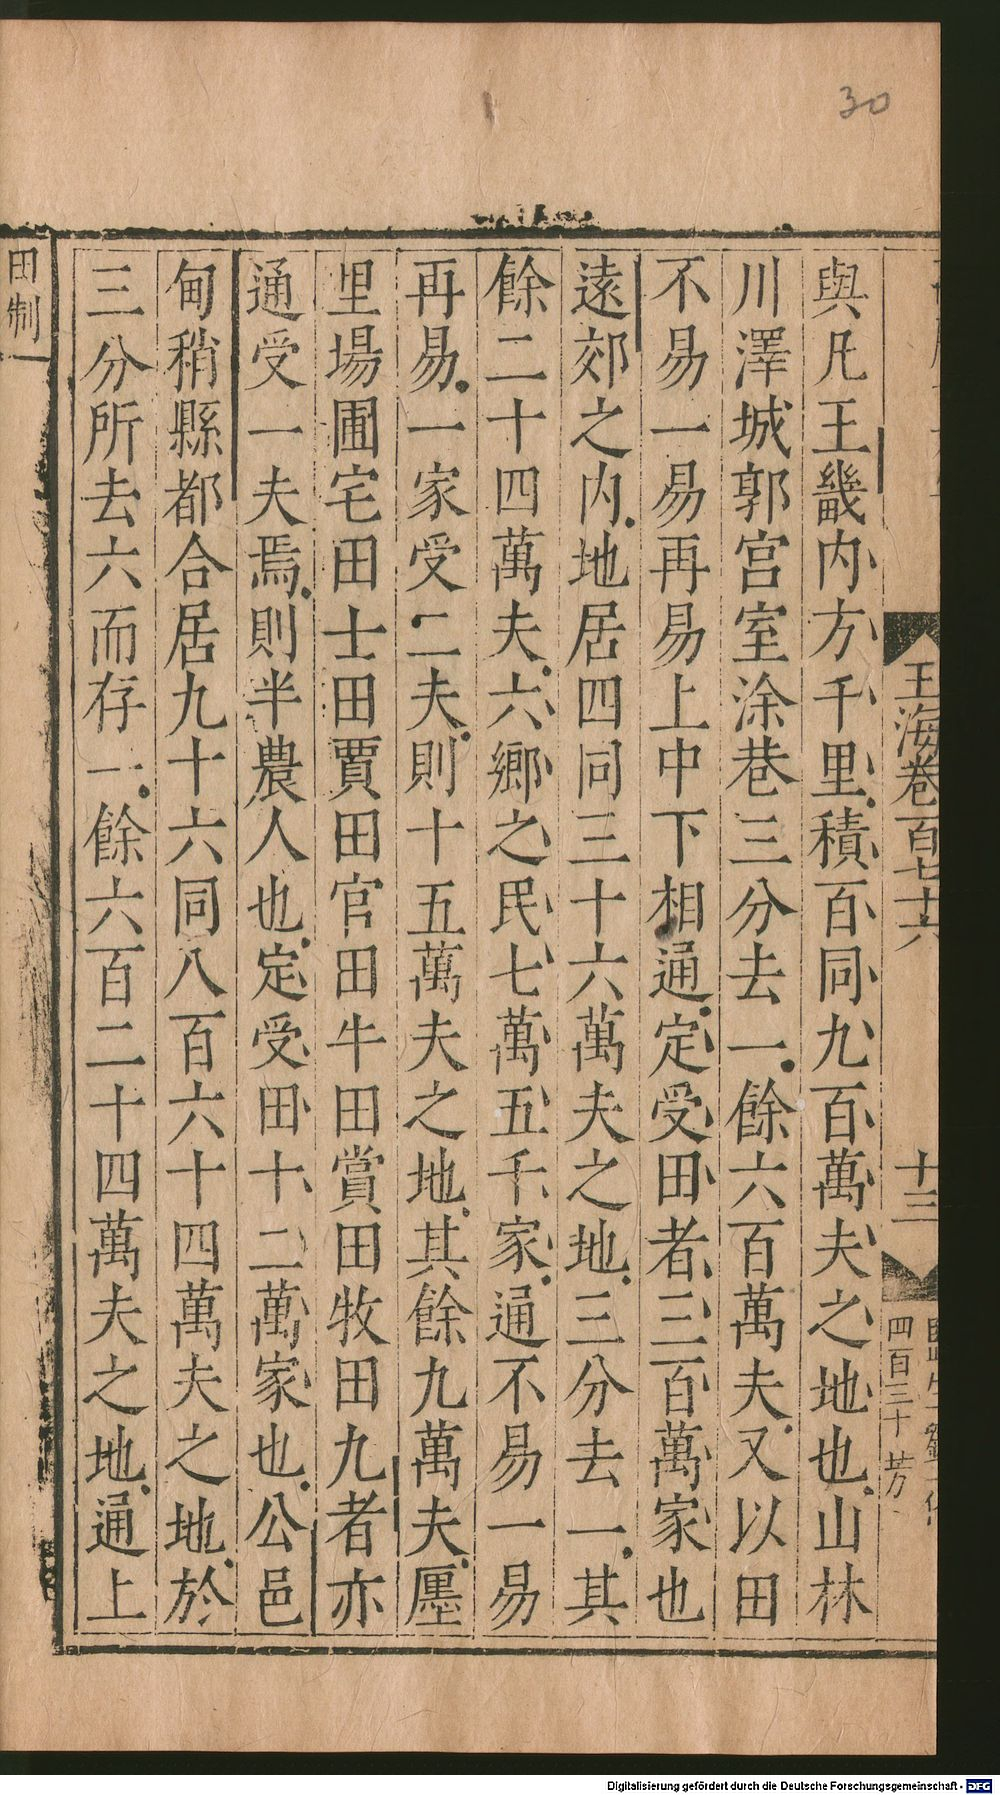 30
玉海卷百七十六
十三
四百三十 芳
與凡王畿内方千里積百同九百萬夫之地也山林
川澤城郭宫室涂巷三分去一餘六百萬夫又以田
不易一易再易上中下相通定受田者三百萬家也
遠郊之内地居四同三十六萬夫之地三分去一其
餘二十四萬夫六鄉之民七萬五千家通不易一易
再易一家受二夫則十五萬夫之地其餘九萬夫廛
里場圃宅田士田賈田官田牛田賞田牧田九者亦
通受一夫焉則半農人也定受田十二萬家也公邑
甸稍縣都合居九十六同八百六十四萬夫之地於
三分所去六而存一餘六百二十四萬夫之地通上
田制一
Digitalisierung gefördert durch die Deutsche Forschungsgemeinschaft - DFG